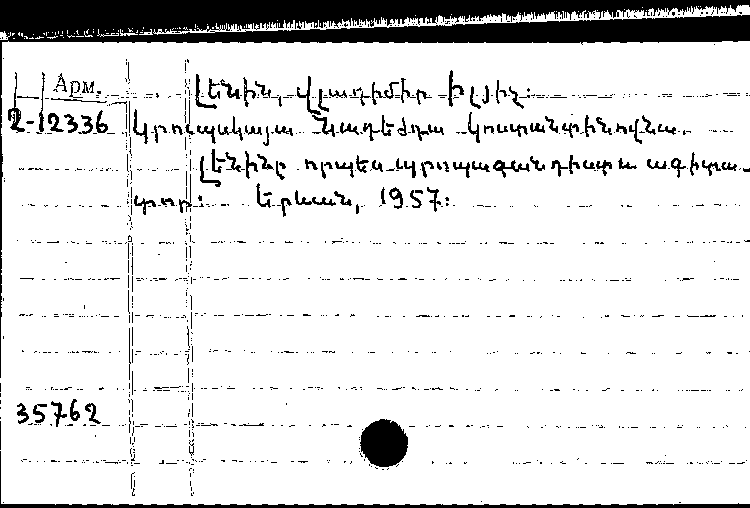 Арм. Լենին, Վլադիմիր Իլյիչ:
2-12336 Կրուպսկայա Նադեժդա Կոստանտինովնա.
Լենինը որպես պրոպագանդիստ և ագիտա-
տոր: Երևան, 1957:
35762